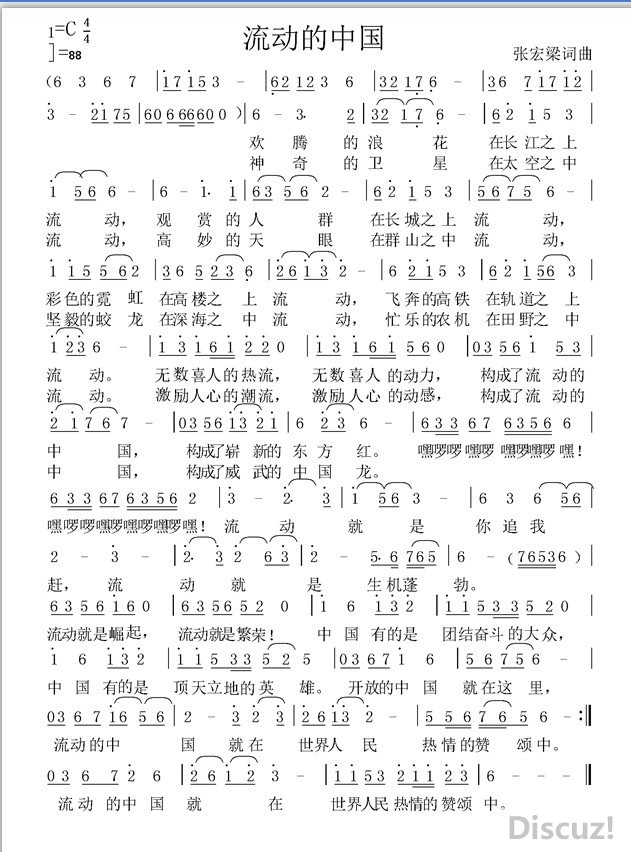 流动的中国
1=C 4/4
]=88
张宏梁词曲
(6 3 6 7 | 17153 - | 62123 6 | 32176 - | 36 71712 |
3 - 2175 | 60666600) | 6 - 3· 2 | 3217 6 | 62153 |
欢 腾 的 浪 花 在长江之上
神 奇 的 卫 星 在太空之中
1 566 - | 6 - 1· 1 | 63562 | 62153 | 56756 - |
流 动, 观 赏 的 人 群 在长城之上 流 动,
流 动, 高 妙 的 天 眼 在群山之中 流 动,
1 15562 | 365236 | 26132 - | 136553 | 621563 |
彩色的霓 虹 在高楼之 上 流 动, 飞奔的高铁 在轨道之上
坚毅的蛟 龙 在深海之 中 流 动, 忙乐的农机 在田野之 中
1 236 - | 13161220 | 13161560 | 0356153 |
流 动。 无数喜人的热流, 无数喜人的动力, 构成了流动的
流 动。 激励人心的潮流, 激励人心的动感, 构成了流动的
2 176 7 - | 03561321 | 6 236 - | 633676356 6 |
中 国, 构成了崭 新的 东 方 红。 嘿啰啰 嘿啰 嘿啰嘿啰 嘿!
中 国, 构成了威 武的 中 国 龙。
633676356 2 | 3 - 2· 3 | 1 563 - | 6 3 3 56 |
嘿啰啰嘿啰嘿啰嘿啰嘿! 流 动 就 是 你 追 我
2 - 3 - | 2· 3263 | 2 - 2 - | 5· 6765 | 6 - (76536) |
赶, 流 动 就 是 生 机 蓬 勃。
63561160 | 63656520 | 1 6 132 | 115533520 |
流动就是崛起, 流动就是繁荣! 中 国 有的是 团结奋斗的大众,
1 6 132 | 1155335 2 | 03671 | 6 6713 |
中 国 有的是 顶天立地的英 雄。 开放的中 国 就在 这 里,
036716 56 | 2 - 323 | 26132 - | 556765 | 6 - - :||
流动的中 国 就在 世界人 民 热情的赞 颂中。
036726 | 2612 - | 3 - - - | 1533211 23 | 6 - - - ||
流动 的中 国 就 在 世界人民 热情的赞颂 中。
Discuz!